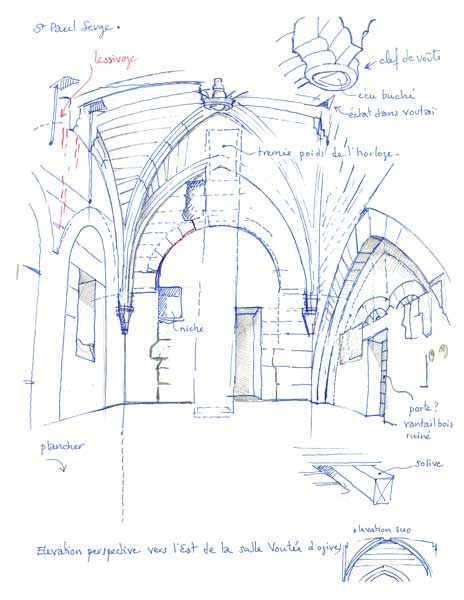 St Paul Serge.
lessivage
clef de voûte
écu buché
éclat dans voutain
tremie poids de l'horloge.
niche
porte?
vantail bois
ruiné
plancher
solive
elevation sud
Elevation perspective vers l'Est de la salle Voutée d'ogives